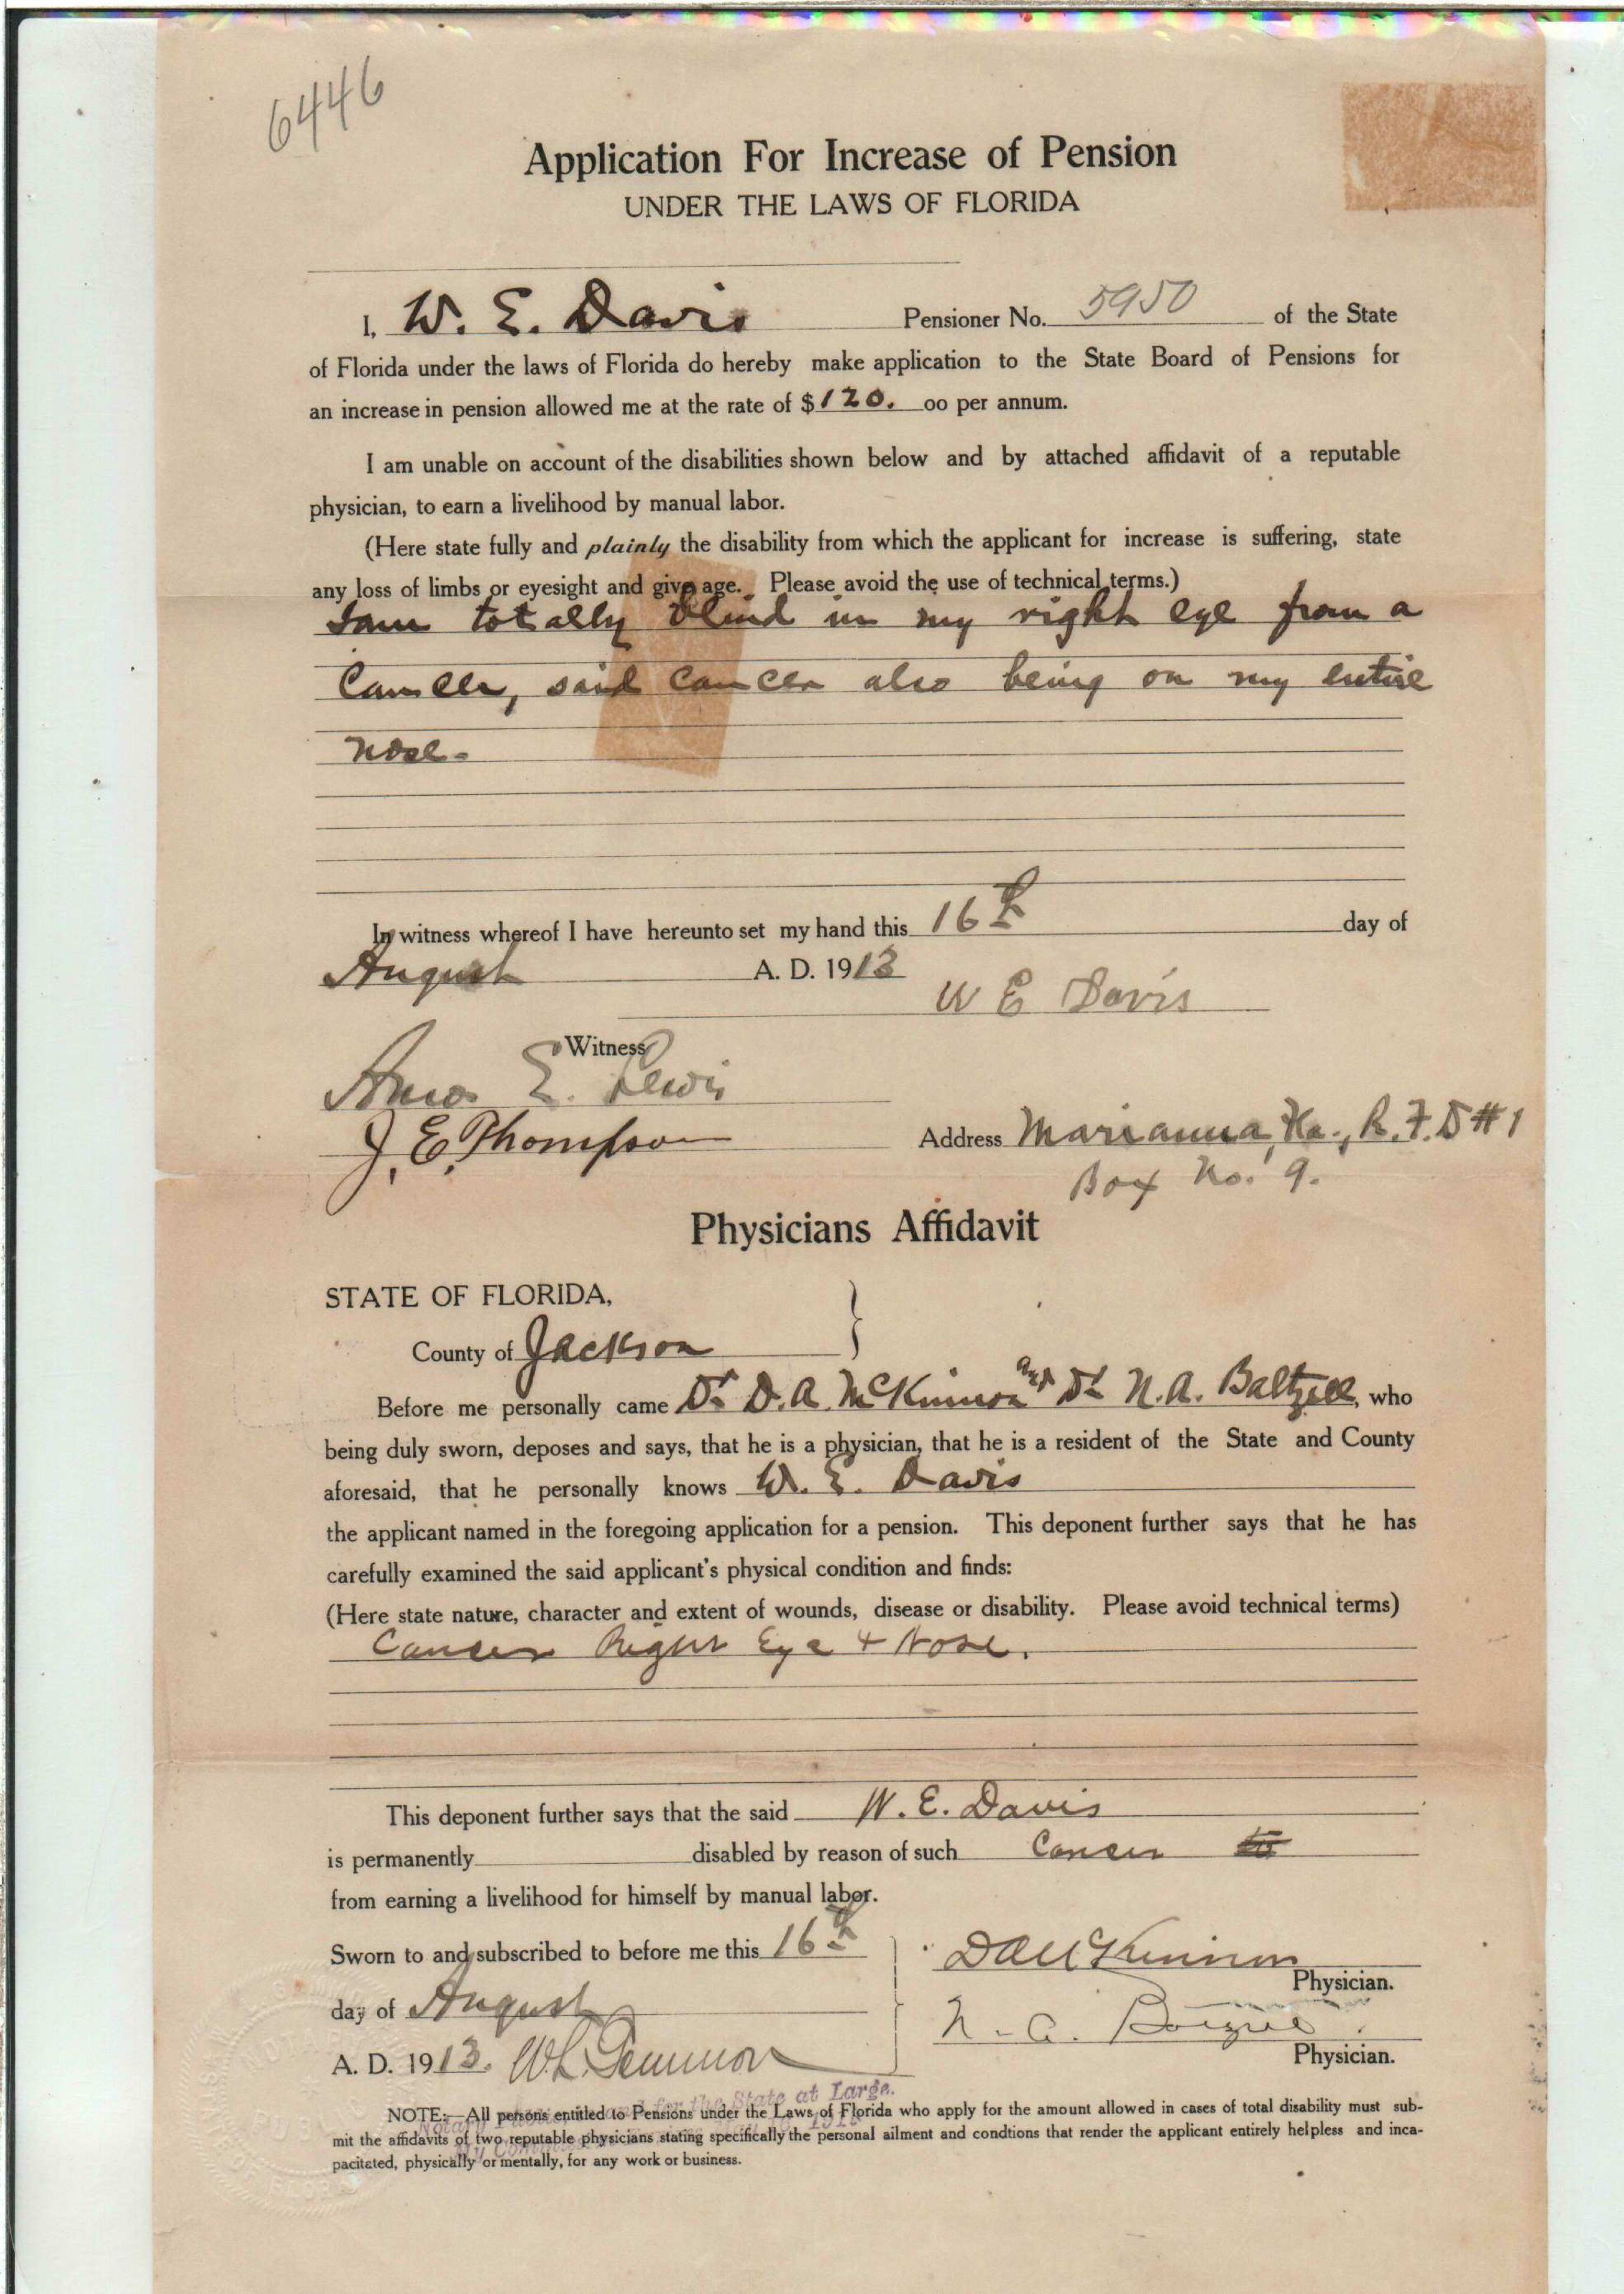 6446
Application For Increase of Pension
UNDER THE LAWS OF FLORIDA
I, W. E. Davis Pensioner No. 5950 of the State
of Florida under the laws of Florida do hereby make application to the State Board of Pensions for
an increase in pension allowed me at the rate of $120. oo per annum.
I am unable on account of the disabilities shown below and by attached affidavit of a reputable
physician, to earn a livelihood by manual labor.
(Here state fully and plainly the disability from which the applicant for increase is suffering, state
any loss of limbs or eyesight and give age. Please avoid the use of technical terms.)
I am totally blind in my right eye from a
Cancer, said cancer also being on my entire
nose.
In witness whereof I have hereunto set my hand this 16th day of
August A. D. 1913
W E Davis
Witness
Amos E. Lewis
J. E. Thompson
Address Marianna, Fla., R. F. D #1
Box No. 9.
Physicians Affidavit
STATE OF FLORIDA,
County of Jackson }
Before me personally came Dr D. A. McKinnon and Dr N. A. Baltzell, who
being duly sworn, deposes and says, that he is a physician, that he is a resident of the State and County
aforesaid, that he personally knows W. E. Davis
the applicant named in the foregoing application for a pension. This deponent further says that he has
carefully examined the said applicant's physical condition and finds:
(Here state nature, character and extent of wounds, disease or disability. Please avoid technical terms)
Cancer Right Eye & Nose.
This deponent further says that the said W. E. Davis
is permanently disabled by reason of such Cancer
from earning a livelihood for himself by manual labor.
Sworn to and subscribed to before me this 16th
D A McKinnon
Physician.
day of August
N. A. Baltzell
Physician.
A. D. 1913.
for the State at Large.
NOTE:—All persons entitled to Pensions under the Laws of Florida who apply for the amount allowed in cases of total disability must sub-
mit the affidavits of two reputable physicians stating specifically the personal ailment and condtions that render the applicant entirely helpless and inca-
pacitated, physically or mentally, for any work or business.